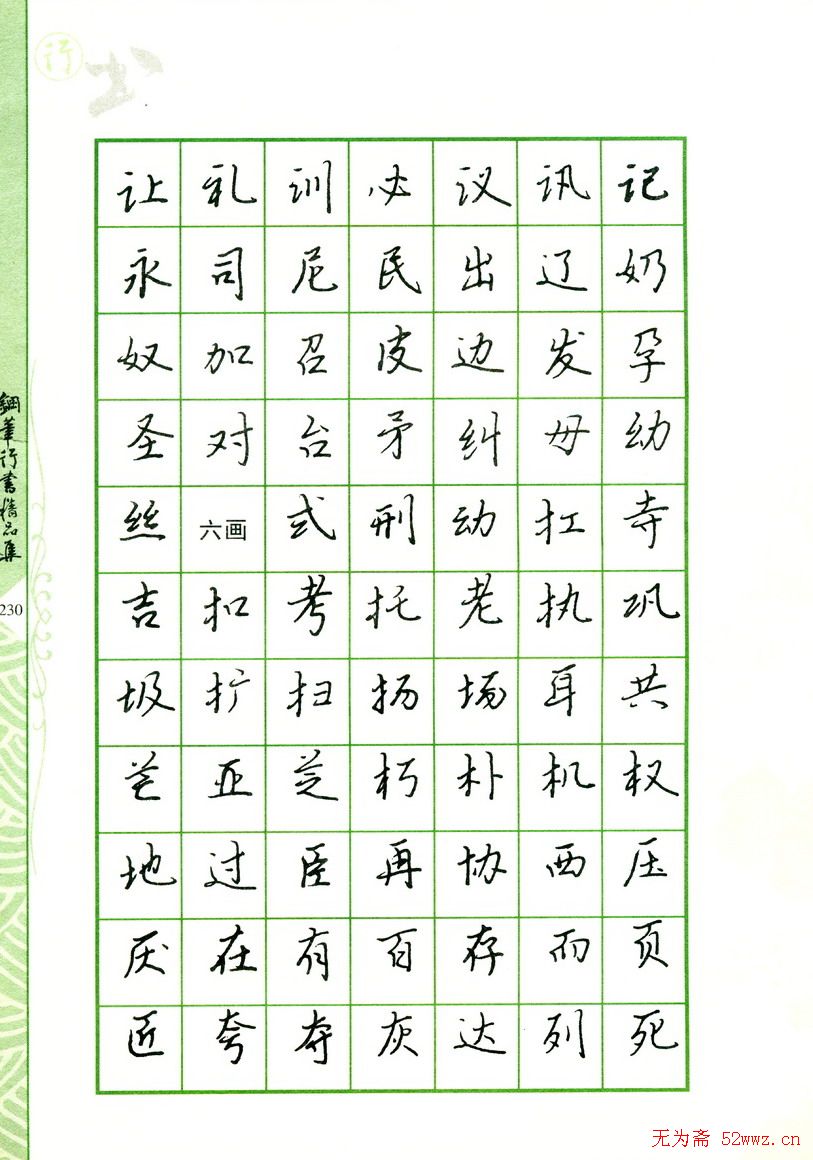 行书
让礼训必议讯记
永司尼民出辽奶
奴加召皮边发孕
圣对台矛纠母幼
丝六画式刑动扛寺
吉扣考托老执巩
圾扩扫扬场耳共
芒亚芝朽朴机权
地过臣再协西压
厌在有百存而页
匠夸夺灰达列死
鋼筆行書精品集
230
无为斋 52wwz.cn